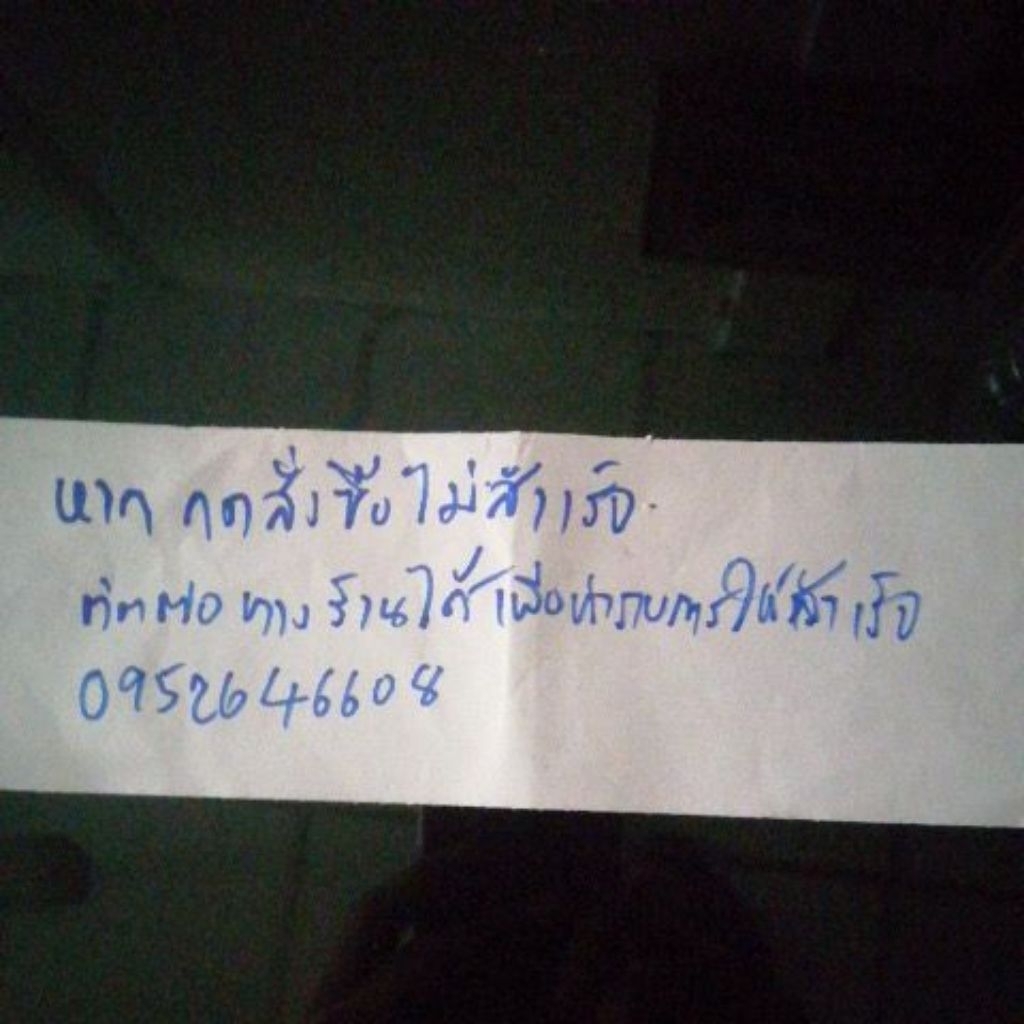 หาก กดสั่งซื้อไม่สำเร็จ.
ติดต่อทางร้านได้เพื่อทำรายการให้สำเร็จ
0952646608